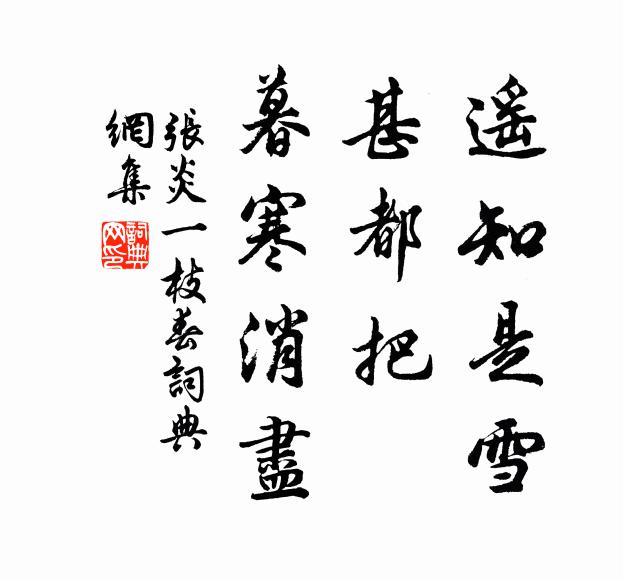 遥知是雪
甚都把
暮寒消盡
張炎一枝春詞典
網集
詞典網印